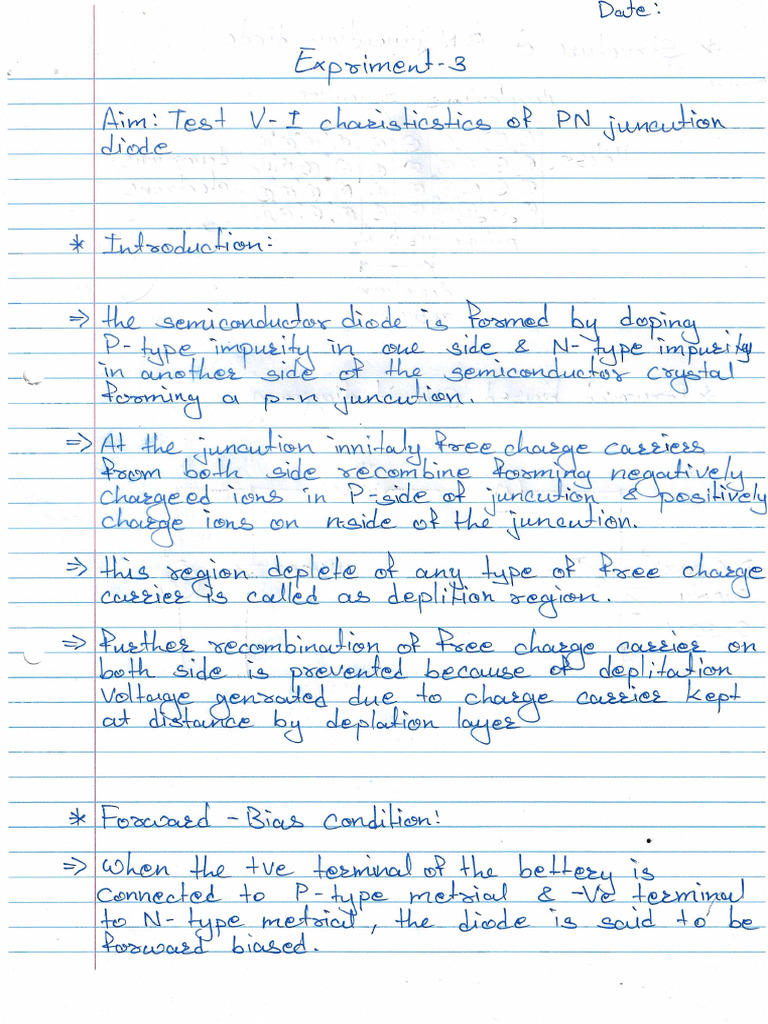 Date:
Expriment-3
Aim: Test V-I charisticstics of PN juncution
diode
* Introduction:
=> the semiconductor diode is formed by doping
P-type impurity in one side & N-type impurity
in another side of the semiconductor crystal
forming a p-n juncution.
=> At the juncution innitaly free charge carriers
from both side recombine forming negatively
chargeed ions in P-side of juncution & positively
charge ions on n-side of the juncution.
=> this region deplete of any type of free charge
carrier is called as deplition region.
=> further recombination of free charge carrier on
both side is prevented because of deplitation
voltage genrated due to charge carrier kept
at distance by deplation layer
* Forward - Bias condition:
=> when the +ve terminal of the bettery is
connected to P-type metrial & -Ve terminal
to N-type metrial, the diode is said to be
forward biased.